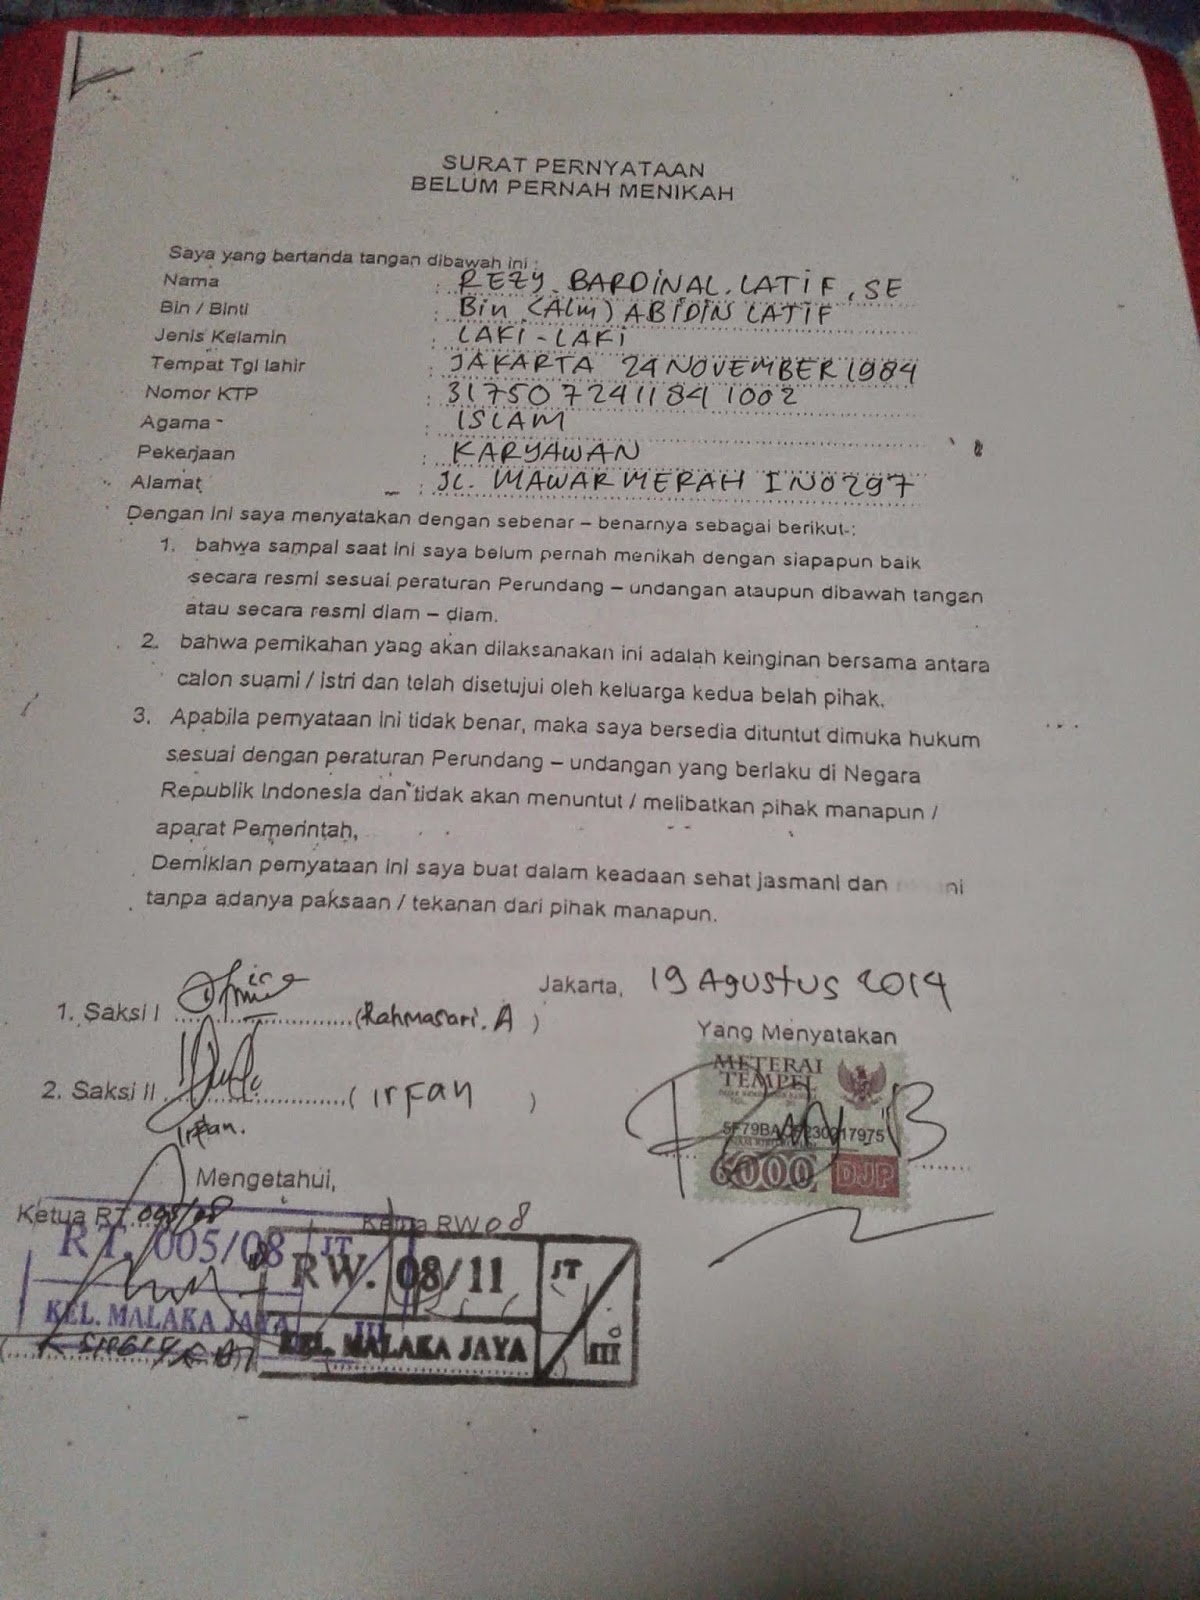 SURAT PERNYATAAN
BELUM PERNAH MENIKAH
Saya yang bertanda tangan dibawah ini :
Nama : REZY BARDINAL. LATIF, SE
Bin / Binti : Bin (Alm) ABIDIN LATIF
Jenis Kelamin : LAKI - LAKI
Tempat Tgl lahir : JAKARTA 24 NOVEMBER 1984
Nomor KTP : 3175072411841002
Agama : ISLAM
Pekerjaan : KARYAWAN
Alamat : JL. MAWAR MERAH I NO 297
Dengan ini saya menyatakan dengan sebenar – benarnya sebagai berikut :
1. bahwa sampai saat ini saya belum pernah menikah dengan siapapun baik
secara resmi sesuai peraturan Perundang – undangan ataupun dibawah tangan
atau secara resmi diam – diam.
2. bahwa pernikahan yang akan dilaksanakan ini adalah keinginan bersama antara
calon suami / istri dan telah disetujui oleh keluarga kedua belah pihak.
3. Apabila pernyataan ini tidak benar, maka saya bersedia dituntut dimuka hukum
sesuai dengan peraturan Perundang – undangan yang berlaku di Negara
Republik Indonesia dan tidak akan menuntut / melibatkan pihak manapun /
aparat Pemerintah,
Demikian pernyataan ini saya buat dalam keadaan sehat jasmani dan
tanpa adanya paksaan / tekanan dari pihak manapun.
Jakarta, 19 Agustus 2014
1. Saksi I (Rahmasari. A)
Yang Menyatakan
METERAI
TEMPEL
2. Saksi II ( Irfan )
Irfan.
6000 DJP
Mengetahui,
Ketua RT. 005/08 Ketua RW 08
RT. 005/08 JT
KEL. MALAKA JAYA III
RW. 08/11 JT
KEL. MALAKA JAYA III